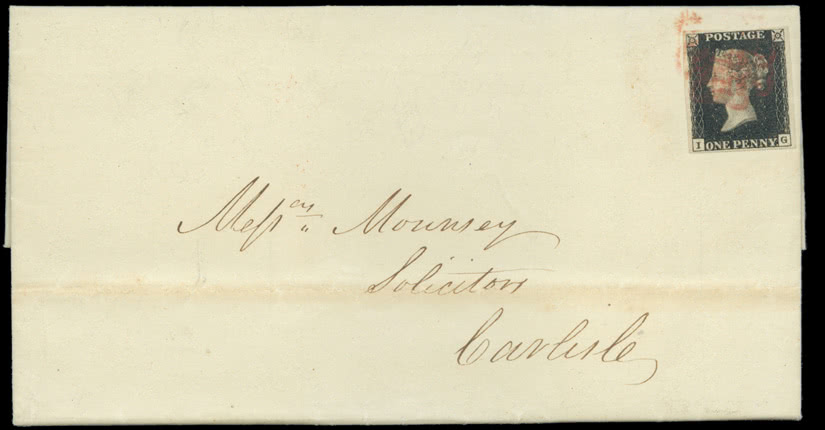 POSTAGE
I ONE PENNY G
Messrs Mounsey
Solicitors
Carlisle